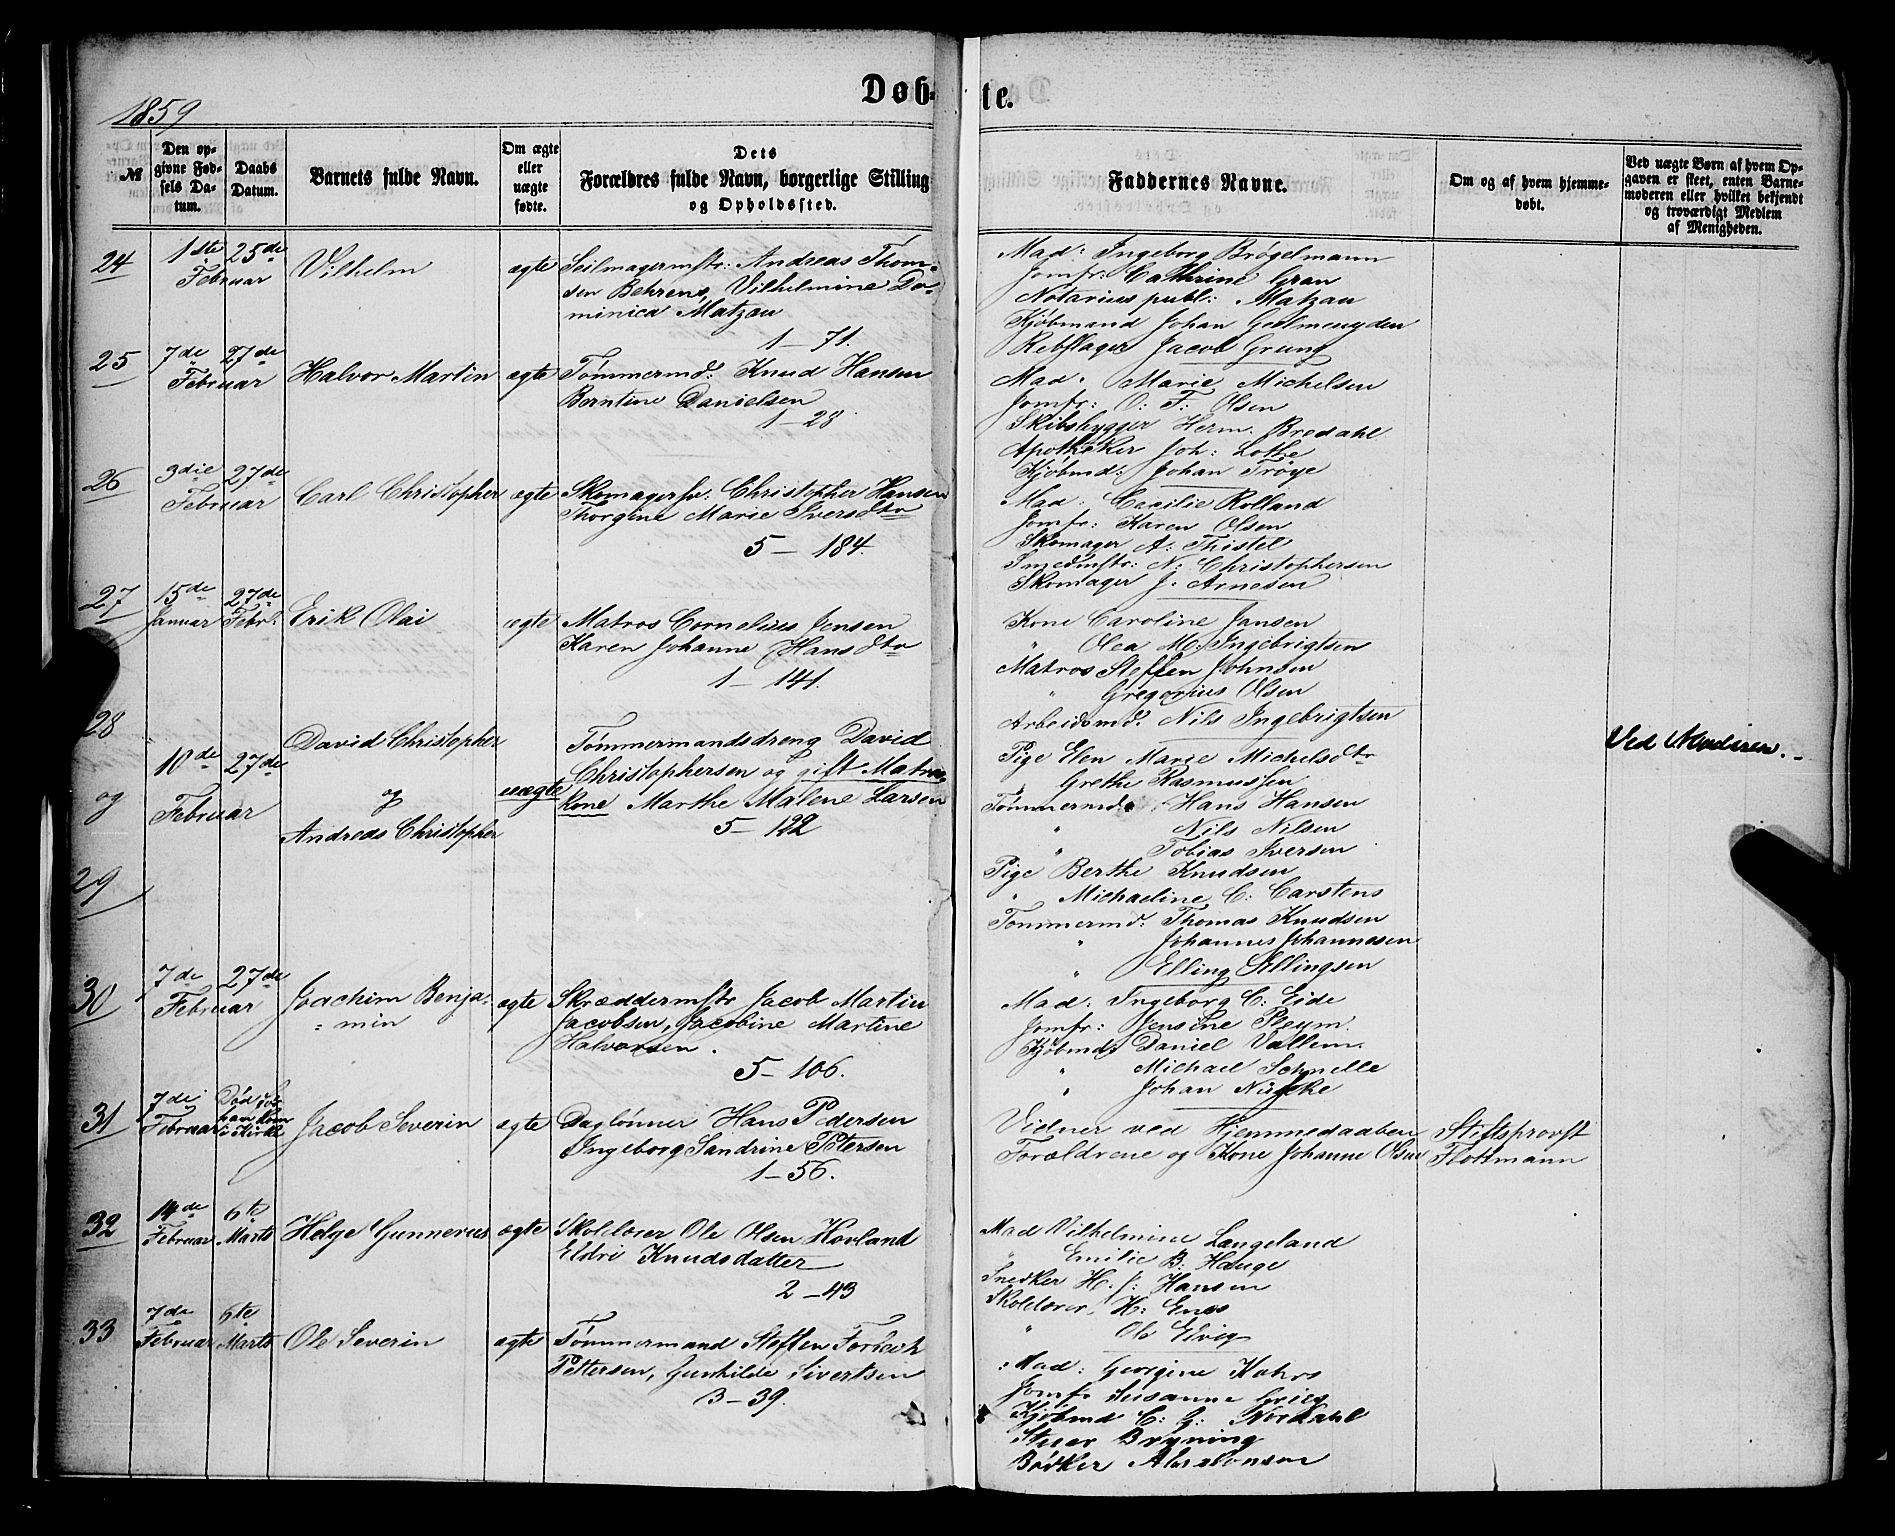 1859
Døbte.
№
Den opgivne Fødsels Datum.
Daabs Datum.
Barnets fulde Navn.
Om ægte eller uægte fødte.
Dets Forældres fulde Navn, borgerlige Stilling og Opholdssted.
Faddernes Navne.
Om og af hvem hjemmedøbt.
Ved uægte Børn af hvem Opgaven er skeet, enten Barnemoderen eller hvilket bekjendt og troværdigt Medlem af Menigheden.
24 1ste Februar 25de Vilhelm ægte Seilmagermstr: Andreas Thom-
sen Behrens, Vilhelmine Do-
minica Matzau
1 - 71.
Mad: Ingeborg Brøgelmann
Jomfr: Cathrine Gran
Notarius publ: Matzau
Kjøbmand Johan Geelmeuyden
Rebslager Jacob Grung
25 7de Februar 27de Halvor Martin ægte Tømmermd: Knud Hansen
Berntine Danielsen
1 - 28
Mad. Marie Michelsen
Jomfr: O: F: Olsen
Skibsbygger Herm. Bredahl
Apotheker Joh: Lothe
Kjøbmd: Johan Trøye
26 3die Februar 27de Carl Christopher ægte Skomagersv: Christopher Hansen
Thorgine Marie Iversdtr
5 - 184.
Mad: Cecilie Rolland
Jomfr: Karen Olsen
Skomager A: Thistel
Smedmstr: N: Christophersen
Skomager J: Arnesen
27 15de Januar 27de Febr. Erik Olai ægte Matros Cornelius Jensen
Karen Johanne Hansdtr
1 - 141.
Kone Caroline Jansen
" Olea M: Ingebrigtsen
Matros Steffen Johnsen
" Gregorius Olsen
Arbeidsmd. Nils Ingebrigtsen
28 og 29 10de Februar 27de David Christopher
og
Andreas Christopher
uægte Tømmermandsdreng David
Christophersen og gift Matros
kone Marthe Malene Larsen
5 - 122
Pige Elen Marie Michelsdtr
" Grethe Rasmussen
Tømmermd: Hans Hansen
" Nils Nilsen
" Tobias Iversen
Pige Berthe Knudsen
" Michaeline C: Carstens
Tømmermd: Thomas Knudsen
" Johannes Johannesen
" Elling Ellingsen
Ved Moderen.
30 7de Februar 27de Joachim Benja-
min
ægte Skræddermstr Jacob Martin
Jacobsen, Jacobine Martine
Halvorsen.
5 - 106.
Mad: Ingeborg C: Eide
Jomfr: Jensine Pleym.
Kjøbmd: Daniel Vallem.
" Michael Schnelle
" Johan
31 7de Februar Død før
han kom
i Kirke
Jacob Severin ægte Daglønner Hans Pedersen
Ingeborg Sandrine Petersen
1 - 56.
Vidner ved Hjemmedaaben
Forældrene og Kone Johanne Olsen
Stiftsprovst
Flottmann
32 14de Februar 6te Marts Helge Gunnerus ægte Skolelærer Ole Olsen Hovland
Eldri Knudsdatter
2 - 43
Mad Vilhelmine Langeland
" Emilie B: Hauge
Snedker H. J: Hansen
Skolelærer H: Enes
" Ole Elvig
33 7de Februar 6te Marts Ole Severin ægte Tømmermand Steffen
Pettersen, Gunhilde Sivertsen
3 - 39.
Mad: Georgine Kahrs
Jomfr Susanne Grieg
Kjøbmd C: G: Nordahl
Bryning
Bødker Absalonsen